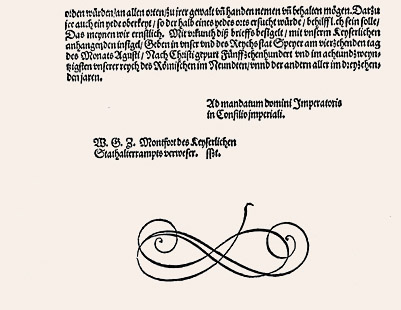 orden würden/an allen orten/zu jrer gewalt vñ handen nemen vñ behalten mögen. Darzu
jre auch ein yede oberkeyt/ so der halb eines yedes orts ersucht würde/ behilfflich sein solle/
Das meynen wir ernstlich. Mit vrkundt diß brieffs besigelt/ mit vnserm Keyserlichen
anhangenden insigel/ Geben in vnser vnd des Reychs stat Speyer am vierzehenden tag
des Monats Augusti/ Nach Christi gepurt Fünffzehenhundert vnd im achtundzweyn-
tzigsten vnserer reych des Römischen im Neundten/vnnd der andern aller im dreyzehen-
den jaren.
Ad mandatum domini Imperatoris
in Consilio imperiali.
W. G. Z. Montfort des Keyserlichen
Stathalterampts verweser. sst.